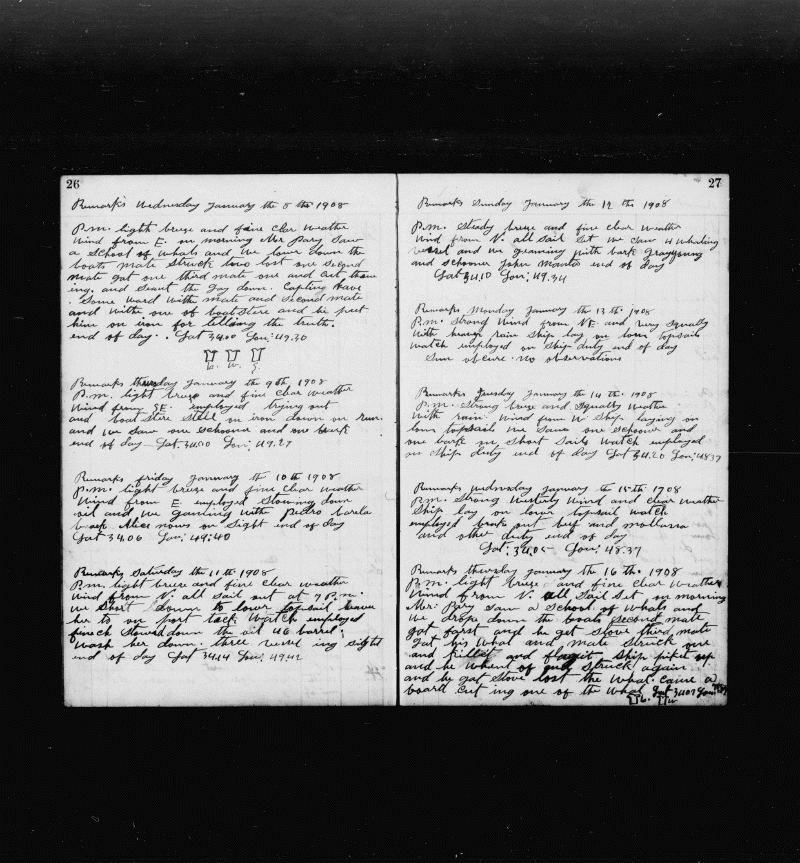 26
Remarks Wednesday January the 8 the 1908
P.m. light breze and fine clear weather
Wind from E. in morning Mr Pary Saw
a School of Whals and we lower down the
boats mate Struck two lost one Second
mate got one third mate one and Cut them
ing. and Seant the Jay down. Capting have
Some Word with mate and Second mate
and withe one of boatStere and he put
him on iron for telling the truth.
end of day. Lat 34.00 Lon: 49.30
Remarks thursday January the 9 th 1908
P.m. light breze and fine clear weather
Wind from SE. employed trying out
and boatStere Still on iron down on run.
and we Saw one Schooner and one bark
end of day Lat. 34.00 Lon: 49.27
Remarks Friday January the 10 th 1908
P.m. light breze and fine clear weather
Wind from E employed Stowing down
oil and we gaming with Pedro Varela
bark Alice nows on Sight end of day
Lat 34.06 Lon: 49:40
Remarks Saturday the 11 th 1908
P.m. light breze and fine clear weather
Wind from N. all sail out at 7 P.m.
We Short down to lower topsail
her to on port tack Watch employed
finech Stowed down the oil 46 barrel:
Wash her down three vessel ing sight
end of day Lat 34.14 Lon: 49.42
27
Remarks Sunday January the 12 th 1908
P.m. Steady breze and fine clear weather
Wind from N. all sail Set we Saw 4 Whaling
vessel and we gaming with bark Grayhoung
and schooner John Manta end of day
Lat 34.10 Lon: 49.34
Remarks Monday January the 13 th 1908
P.m. Strong Wind from NE and Very Squally
With heavy rain Ship lay on lower topsail
Watch employed on Ship duty end of day
Sun obcure no observations
Remarks Tuesday January the 14 th 1908
P.m. Strong breze and Squally Weather
With rain Wind from W Ship laying on
lower topsail we Saw one Schooner and
one bark on Short Sails Watch employed
on Ship duty end of day Lat 34.20 Lon: 48.37
Remarks Wednesday January the 15 th 1908
P.m. Strong Westerly Wind and clear weather
Ship lay on lower topsail watch
employed brok out beef and
and other duty end of day
Lat: 34.05 Lon: 48.37
Remarks thursday January the 16 th. 1908
P.m. light breze and fine clear Weather
Wind from N. all sail Set in morning
Mr: Pary Saw a School of Whals and
We drop down the boats Second mate
got farst and he get Stove third mate
Gat his What and mate Struck one
and killet and flagit Ship piket up
and he Whent of and Struck again
and he gat Stove lost the What. Came a
board Cut ing one of the What Lat 34.07 Lon: